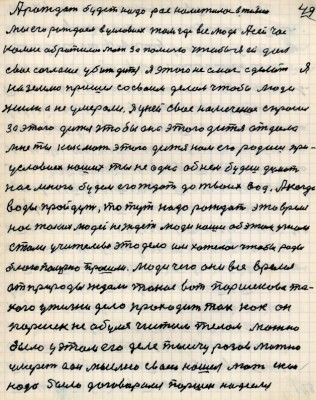 А рождат будет надо рас наметилося такое 49
мысе рождаем в условиях тогда все люди А сейчас
ко мне обратился мат за помочью чтобы я ей дал
свое согласие убить дитя Я этого не смог сделать Я
на землю пришел со своим делом чтобы люди
жили а не умерали. Я у ней свое намеченое спросил
за этого дитя чтобы оно этого дитя отдала
мне ты как мат этого дитя нам его родиш при
условиях наших ты не одна об нем будеш думат
нас много будем его ждать до твоих вод, А когда
воды пройдут, то тут надо рождать это время
нас таких людей не ждет люди наши об этом узнали
стали учителево это дело им хотелося чтобы роды
благополучно прошли. люди чего они все время
от природы ждали такое вот паршивова та-
кого у жизни дело проходит так как он
паршек не абуля чистым телом можно
было у этом его деле тысячу разов можно
умерет а он мыслею своею нашел мат с кем
надо было договорился паршек на делу